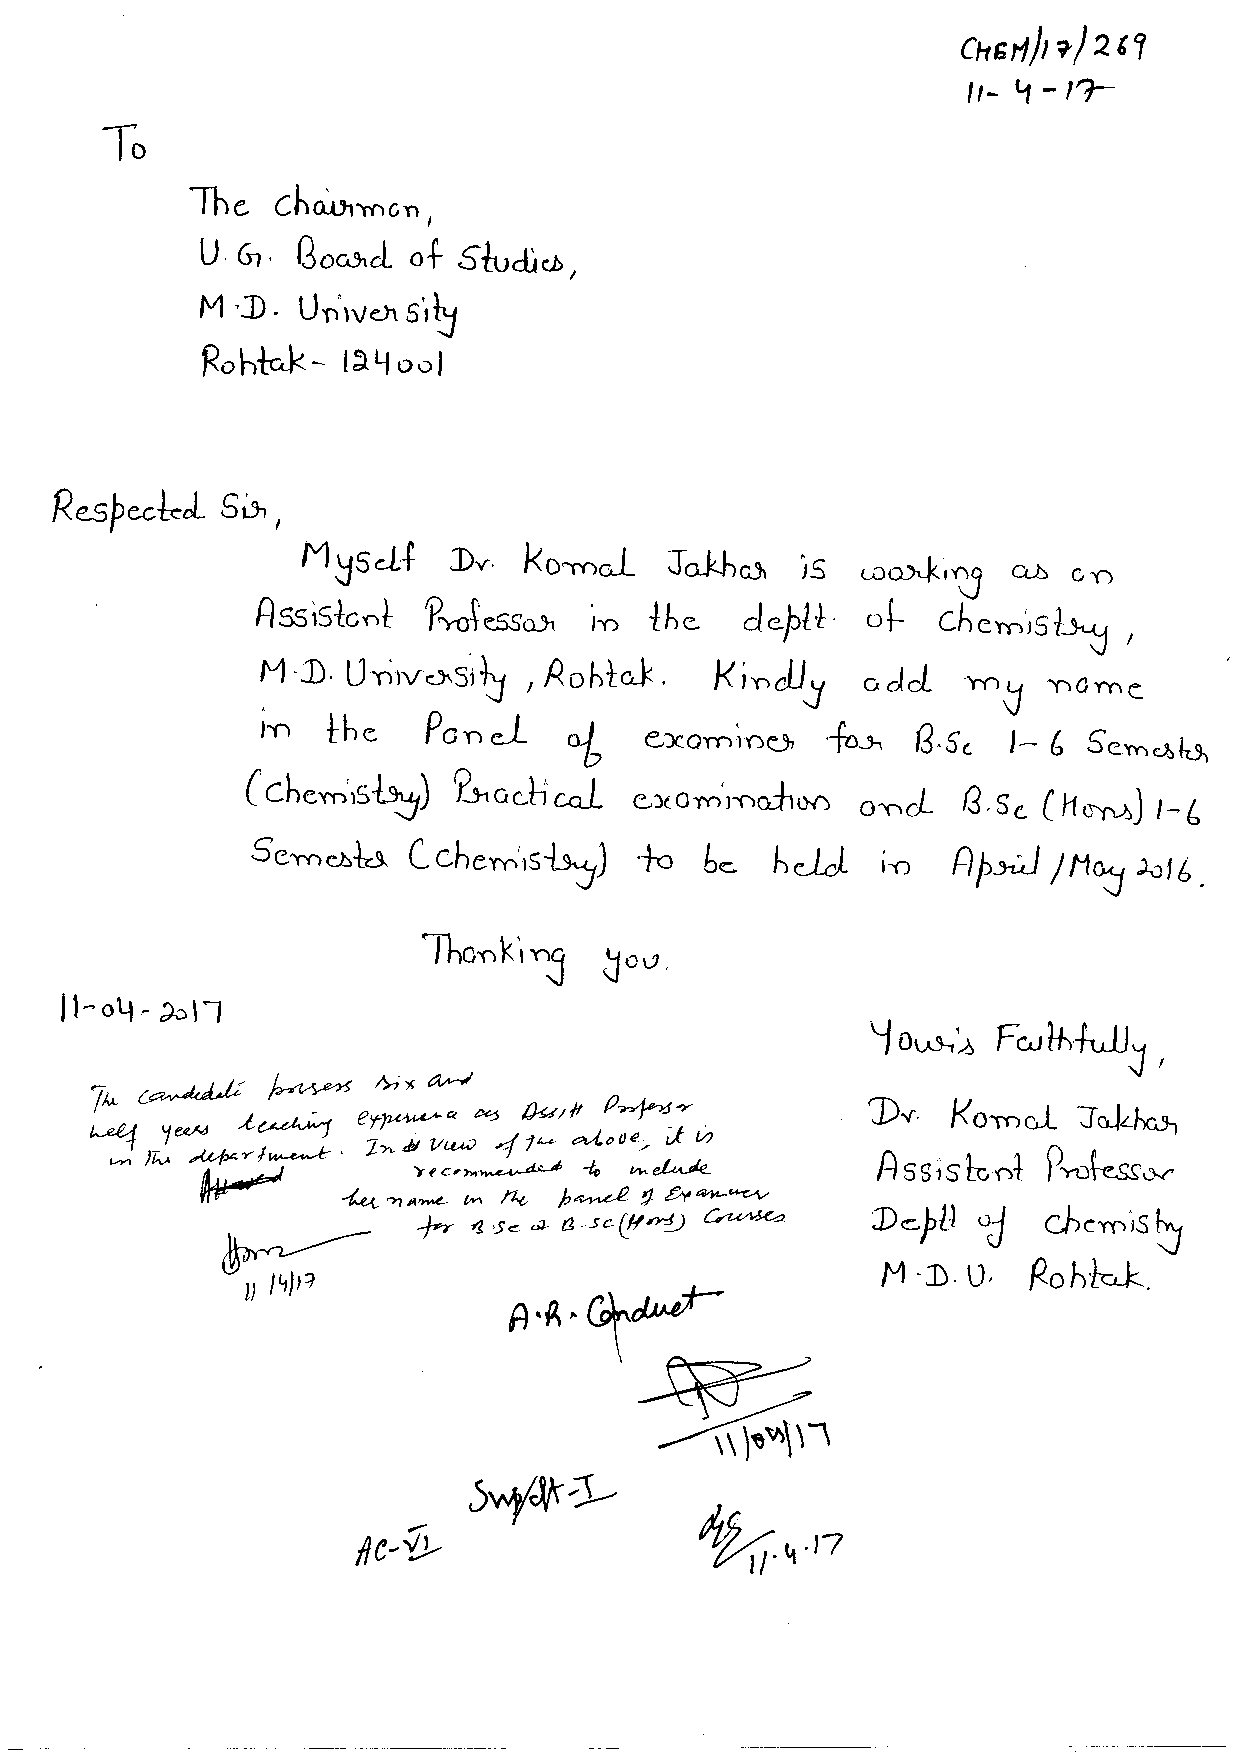 CHEM/17/269
11-4-17
To
The Chairman,
U.G. Board of Studies,
M.D. University
Rohtak-124001
Respected Sir,
Myself Dr. Komal Jakhar is working as an
Assistant Professor in the deptt. of Chemistry,
M.D. University, Rohtak. Kindly add my name
in the Panel of examiner for B.Sc 1-6 Semester
(Chemistry) Practical examination and B.Sc (Hons) 1-6
Semester (Chemistry) to be held in April/May 2016.
Thanking you.
11-04-2017
Your's Faithfully,
The candidate possess six and
half years teaching experience as Asstt Professor
in the department. In view of the above, it is
recommended to include
her name in the panel of Examiner
for B.Sc & B.Sc (Hons) Courses
11/4/17
Dr. Komal Jakhar
Assistant Professor
Deptt of Chemistry
M.D.U. Rohtak.
A.R. Conduct
11/04/17
Supdt-I
AC-VI
11.4.17